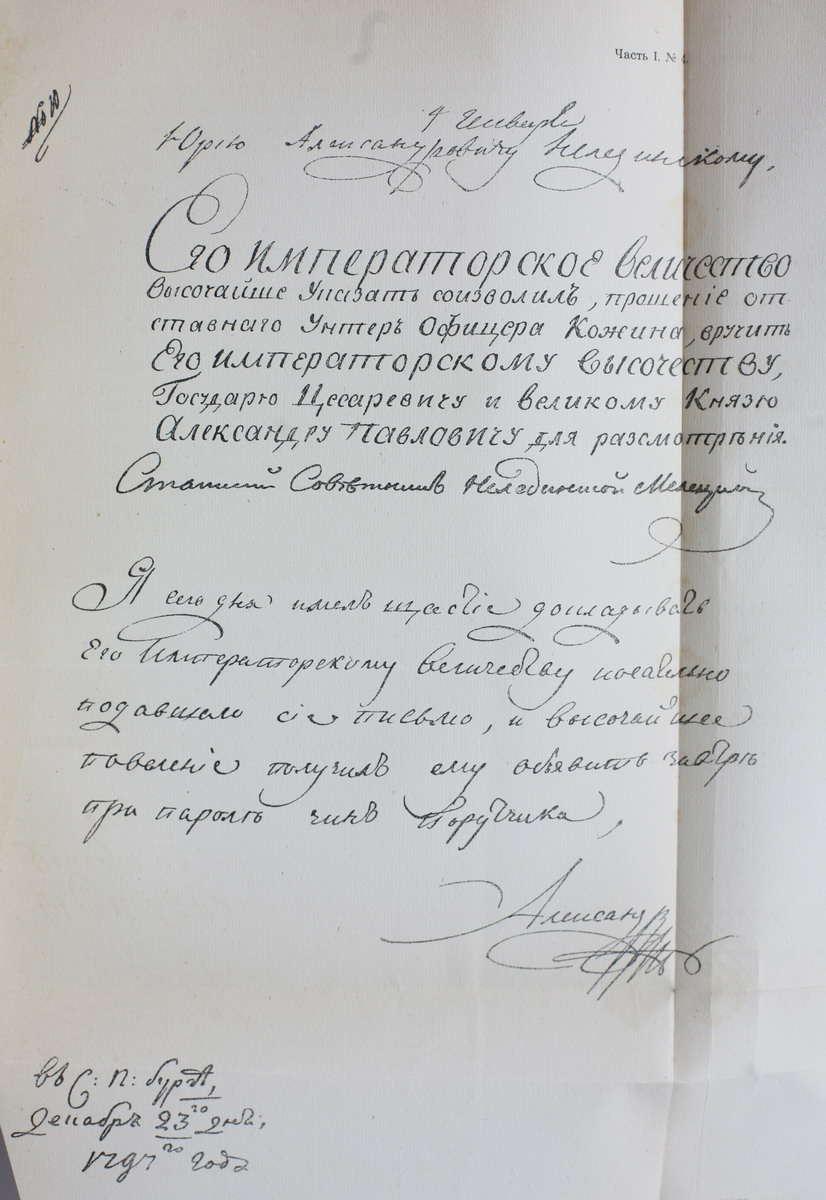 Часть I. № 4.
Юрию Александровичу Нелединскому,
Его императорское величество
высочайше указать соизволилъ, прошеніе от
ставнаго Унтеръ Офицера Кожина, вручить
Его императорскому высочеству,
Государю Цесаревичу и великому Князю
Александру Павловичу для разсмотрѣнія.
Статский Совѣтникъ Нелединской Мелецкой
Я сего дня имелъ щастіе докладывать
Его Императорскому Величеству
подавшаго сіе письмо, и высочайшее
повеленіе получилъ ему объявить завтрѣ
при паролѣ чинъ Порутчика,
Александръ
въ С: П: бургѣ,
Декабрь 23го дня,
года